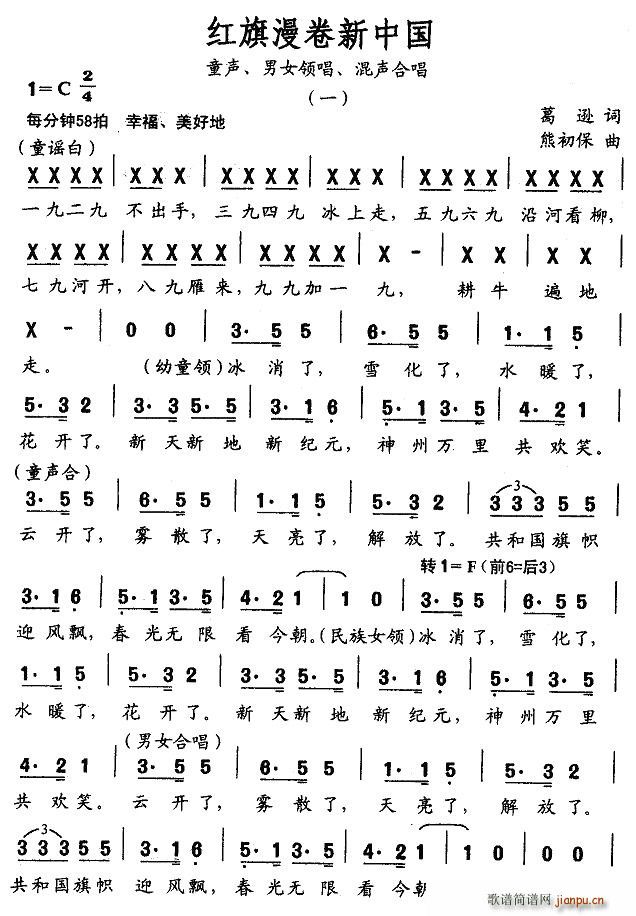 红旗漫卷新中国
童声、男女领唱、混声合唱
(一)
1=C 2/4
每分钟58拍 幸福、美好地
葛逊 词
熊初保 曲
(童谣白)
X X X X X X X | X X X X X X X | X X X X X X X
一九二九 不出手, 三九四九 冰上走, 五九六九 沿河看柳,
X X X X | X X X X | X X X X | X - | X X | X X
七九河开, 八九雁来, 九九加一 九, 耕牛 遍地
X - | 0 0 | 3· 5 5 | 6· 5 5 | 1· 1 5
走。 (幼童领)冰 消了, 雪 化了, 水 暖了,
5· 3 2 | 3· 3 5· 5 | 3· 1 6 | 5· 1 3· 5 | 4· 2 1
花 开了。 新 天新 地 新 纪元, 神 州万 里 共 欢笑。
(童声合)
3· 5 5 | 6· 5 5 | 1· 1 5 | 5· 3 2 | 3 3 3 5 5
云 开了, 雾 散了, 天 亮了, 解 放了。 共和国旗帜
转1=F(前6=后3)
3· 1 6 | 5· 1 3· 5 | 4· 2 1 | 1 0 | 3· 5 5 | 6· 5 5
迎 风飘, 春 光无 限 看 今朝。(民族女领)冰 消了, 雪 化了,
1· 1 5 | 5· 3 2 | 3· 3 5· 5 | 3· 1 6 | 5· 1 3· 5
水 暖了, 花 开了。 新 天新 地 新 纪元, 神 州万 里
(男女合唱)
4· 2 1 | 3· 5 5 | 6· 5 5 | 1· 1 5 | 5· 3 2
共 欢笑。 云 开了, 雾 散了, 天 亮了, 解 放了。
3 3 3 5 5 | 3· 1 6 | 5· 1 3· 5 | 4· 2 1 | 1 0
共和国旗帜 迎 风飘, 春 光无 限 看 今朝
歌谱简谱网
jianpu.cn